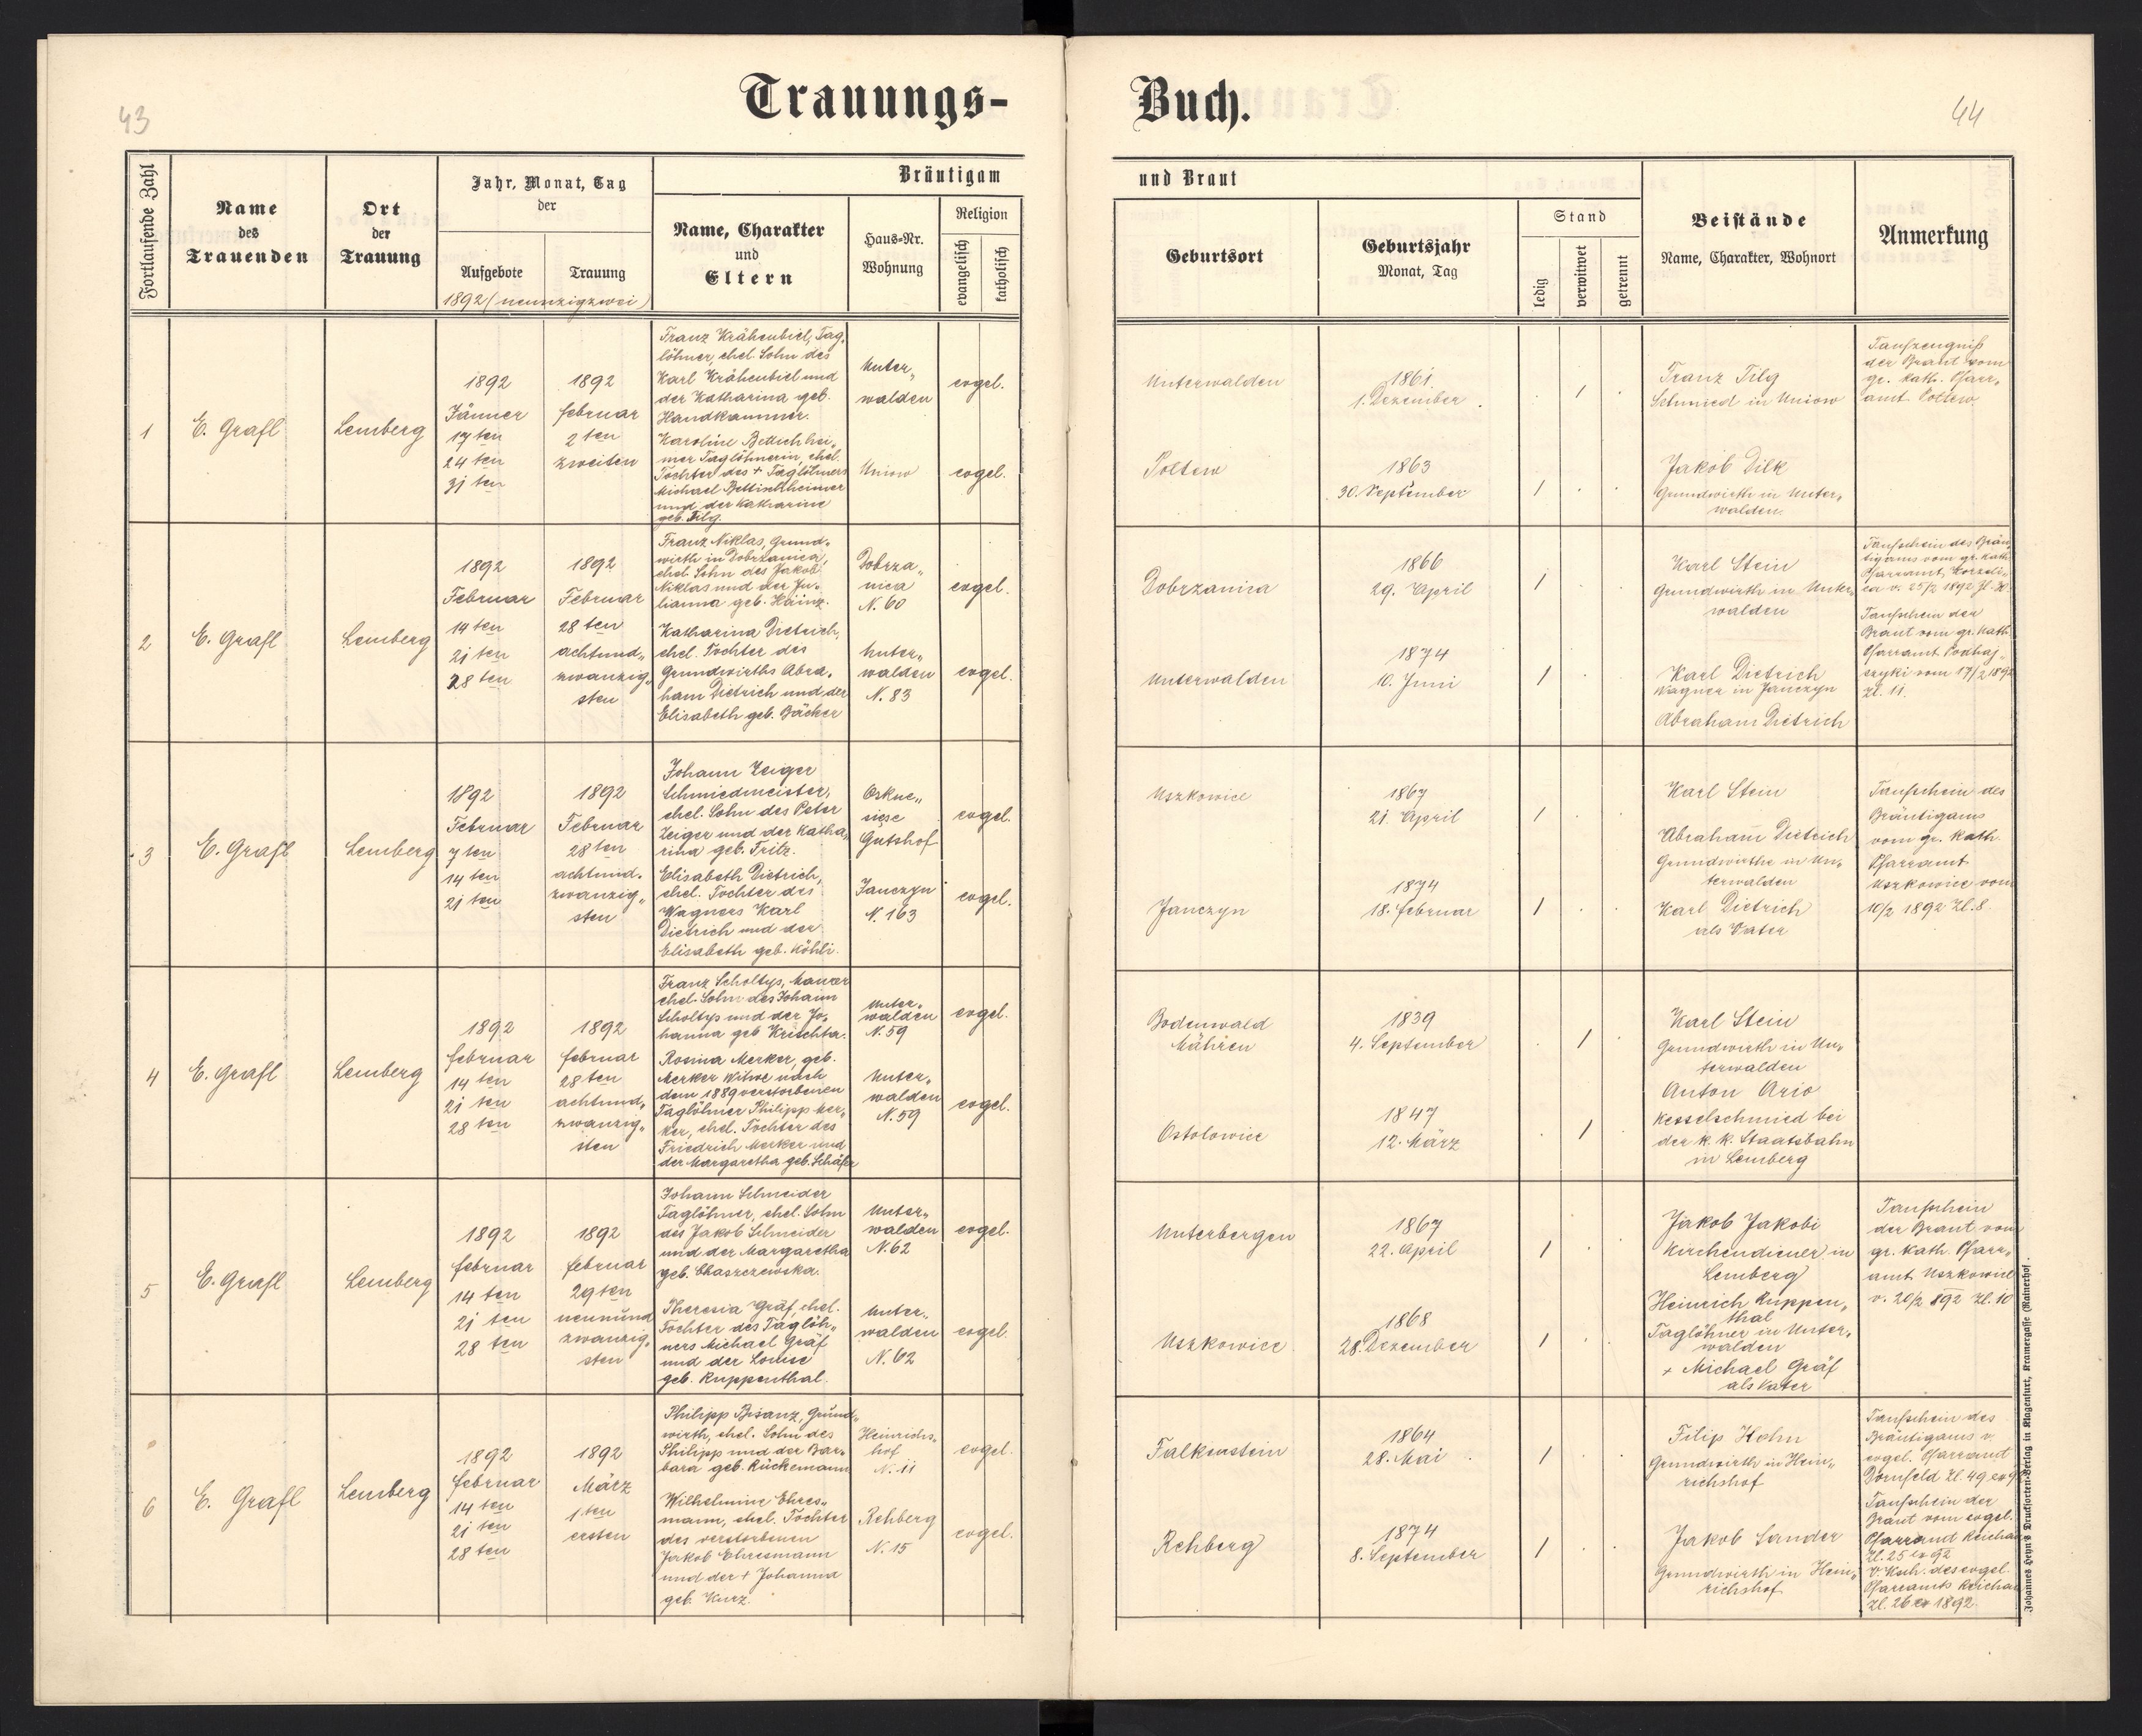 43
Trauungs-
Buch.
44
Fortlaufende Zahl
Name
des
Trauenden
Ort
der
Trauung
Jahr, Monat, Tag
der
Aufgebote
Trauung
1892 (neunzigzwei)
Bräutigam
Name, Charakter
und
Eltern
Haus-Nr.
Wohnung
Religion
evangelisch
katholisch
und Braut
Geburtsort
Geburtsjahr
Monat, Tag
Stand
ledig
verwitwet
getrennt
Beistände
Name, Charakter, Wohnort
Anmerkung
1
E. Grafl
Lemberg
1892
Jänner
17 ten
24 ten
31 ten
1892
februar
2 ten
zweiten
Franz Krähenbiel, Tag„
löhner, ehel. Sohn des
Karl Krähenbiel und
der Katharina geb.
Handkammer.
Karoline Bettichhei„
mer Taglöhnerin, ehel.
Tochter des + Taglöhners
Michael Bettischheimer
und der Katharine
geb. Tilg.
Unter„
walden
Uniow
evgel.
evgel.
Unterwalden
Poltew
1861
1. Dezember
1863
30. September
Franz Tilg
Schmied in Uniow
Jakob Dilk
Grundwirth in Unter„
walden.
Taufzeugniß
der Braut vom
gr. kath. Pfarr„
amt Poltew
2
E. Grafl
Lemberg
1892
Februar
14 ten
21 ten
28 ten
1892
Februar
28 ten
achtund„
zwanzig„
sten
Franz Niklas, Grund„
wirth in Dobrzanica,
ehel. Sohn des Jakob
Niklas und der Ju„
lianna geb. Hainz.
Katharina Dietrich,
ehel. Tochter des
Grundwirths Abra„
ham Dietrich und der
Elisabeth geb. Bäcker
Dobrza„
nica
N. 60
Unter„
walden
N. 83
evgel.
evgel.
Dobrzanica
Unterwalden
1866
29. April
1874
10. Juni
Karl Stein
Grundwirth in Unter„
walden
Karl Dietrich
Wagner in Janczyn
Abraham Dietrich
Taufschein des Bräu„
tigams vom gr. kath.
Pfarramt
v. 25/2 1892
Taufschein der
Braut vom gr. kath.
Pfarramt Podhaj„
czyki vom 17/2 1892
Zl. 11.
3
E. Grafl
Lemberg
1892
Februar
7 ten
14 ten
21 ten
1892
Februar
28 ten
achtund„
zwanzig„
sten
Johann Zeiger
Schmiedmeister,
ehel. Sohn des Peter
Zeiger und der Katha„
rina geb. Fritz.
Elisabeth Dietrich,
ehel. Tochter des
Wagners Karl
Dietrich und der
Elisabeth geb. Köhli.
Gutshof
Janczyn
N. 163
evgel.
evgel.
Uszkowice
Janczyn
1867
21. April
1874
18. februar
Karl Stein
Abraham Dietrich
Grundwirthe in Un„
terwalden
Karl Dietrich
als Vater
Taufschein des
Bräutigams
vom gr. kath.
Pfarramt
Uszkowice vom
10/2 1892 Zl. 8.
4
E. Grafl
Lemberg
1892
februar
14 ten
21 ten
28 ten
1892
februar
28 ten
achtund„
zwanzig„
sten
Franz Scholtys, Maurer
ehel. Sohn des Johann
Scholtys und der Jo„
hanna geb. Krischta.
Rosina Merker, geb.
Merker Witwe nach
dem 1889 verstorbenen
Taglöhner Philipp Mer„
ker, ehel. Tochter des
Friedrich Merker und
der Margaretha geb. Schäfer
Unter„
walden
N. 59
Unter„
walden
N. 59
evgel.
evgel.
Bodenwald
Mähren
Ostolowice
1839
4. September
1847
12. März
Karl Stein
Grundwirth in Un„
terwalden
Anton Ario
Kesselschmied bei
der k. k. Staatsbahn
in Lemberg
5
E. Grafl
Lemberg
1892
februar
14 ten
21 ten
28 ten
1892
februar
29 ten
neunund
zwanzig„
sten
Johann Schneider
Taglöhner, ehel. Sohn
des Jakob Schneider
und der Margaretha
geb. Chaszczewska.
Theresia Gräf, ehel.
Tochter des Taglöh„
ners Michael Gräf
und der Louise
geb. Ruppenthal.
Unter„
walden
N. 62
Unter„
walden
N. 62
evgel.
evgel.
Unterbergen
Uszkowice
1867
22. April
1868
28. Dezember
Jakob Jakobi
Kirchendiener in
Lemberg
Heinrich Ruppen„
thal
Taglöhner in Unter„
walden
+ Michael Gräf
als Vater
Taufschein
der Braut vom
gr. kath. Pfarr„
amt Uszkowice
v. 20/2 892 Zl. 10
6
E. Grafl
Lemberg
1892
februar
14 ten
21 ten
28 ten
1892
März
1 ten
ersten
Philipp Bisanz, Grund„
wirth, ehel. Sohn des
Philipp und der Bar„
bara geb. Rückemann
Wilhelmine Ehres„
mann, ehel. Tochter
des verstorbenen
Jakob Ehresmann
und der + Johanna
geb. Kurz.
Heinrichs„
hof
N. 11
Rehberg
N. 15
evgel.
evgel.
Falkenstein
Rehberg
1864
28. Mai
1874
8. September
Filip Kohn
Grundwirth in Hein„
richshof
Jakob Sander
Grundwirth in Hein„
richshof
Taufschein des
Bräutigams v.
evgel. Pfarramt
Dornfeld Zl. 49 ex 9
Taufschein der
Braut vom evgel.
Pfarramt Reichau
Zl. 25 ex 92
des evgel.
Pfarramts Reichau
Zl. 26 ex 1892.
Johannes Heyn's Drucksorten-Verlag in Klagenfurt, Kramergasse (Rainerhof.